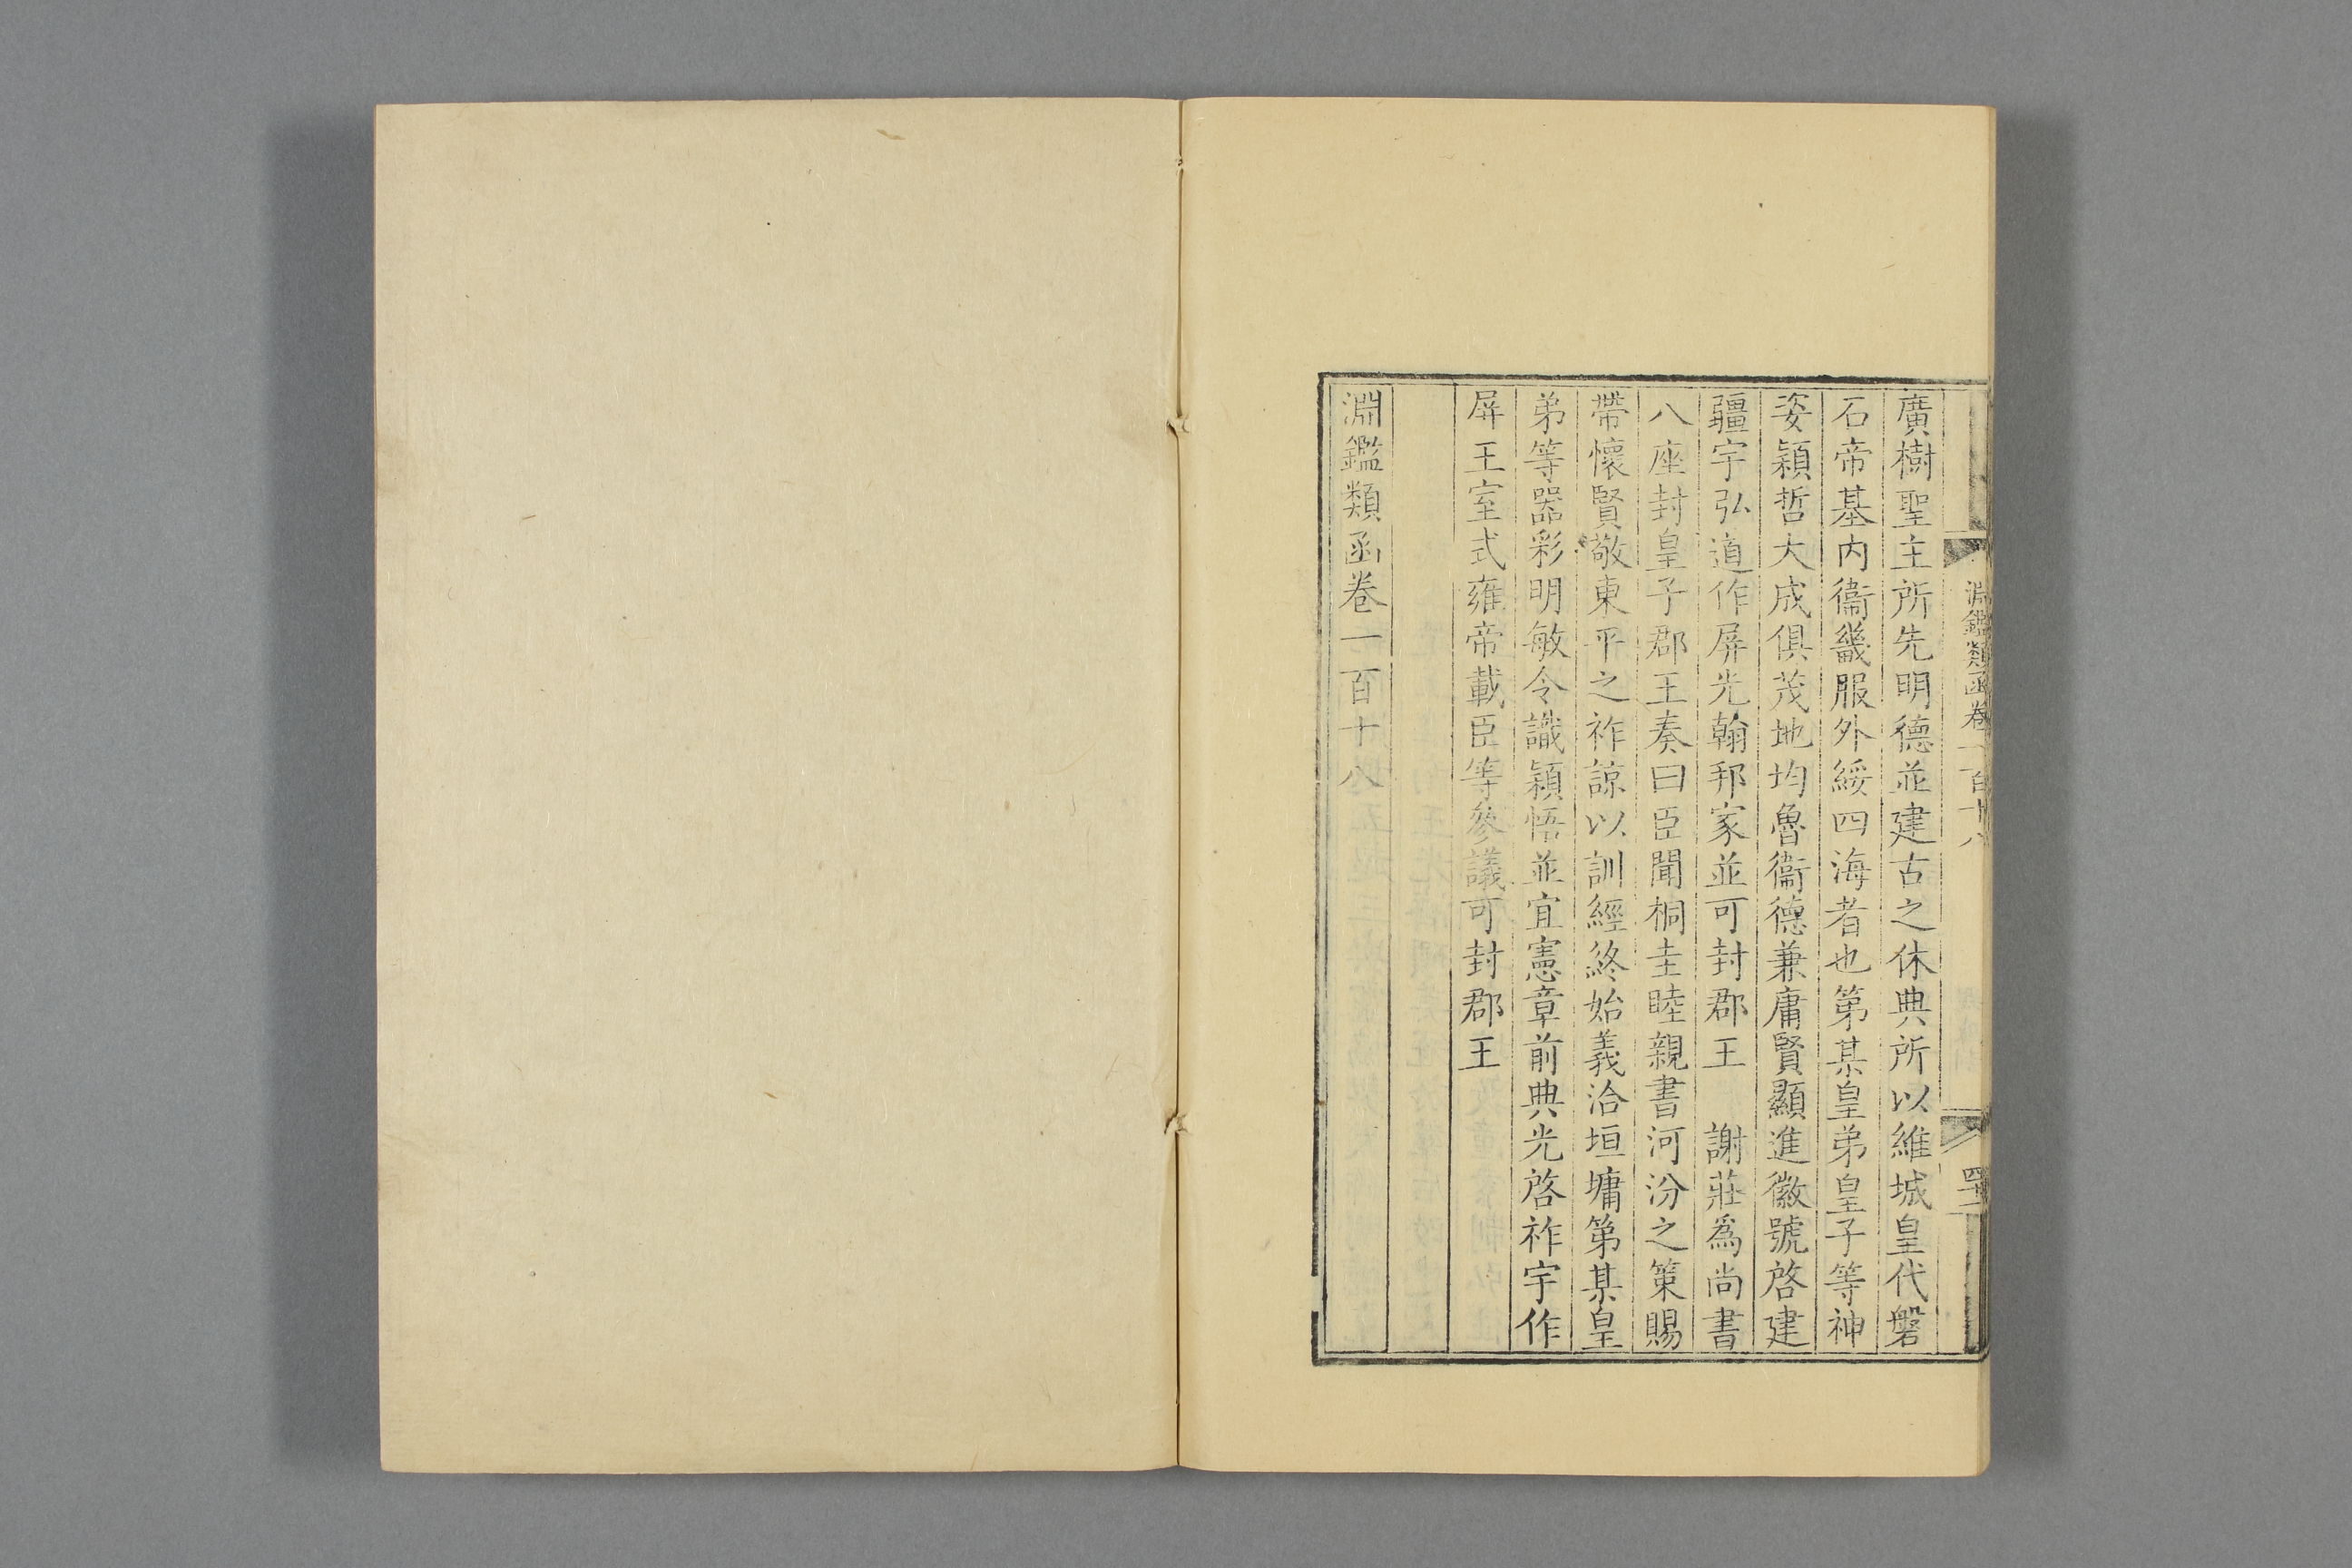 淵鑑類函卷一百十八
廣樹聖主所先明德並建古之休典所以維城皇代磐
石帝基内衞畿服外綏四海者也第某皇弟皇子等神
姿穎哲大成俱茂地均魯衞德兼庸賢顯進徽號啓建
疆宇弘道作屏光翰邦家並可封郡王　謝莊爲尚書
八座封皇子郡王奏曰臣聞桐圭睦親書河汾之策賜
帶懷賢敬東平之祚諒以訓經終始義洽垣墉第某皇
弟等器彩明敏令識穎悟並宜憲章前典光啓祚宇作
屏王室式雍帝載臣等參議可封郡王
淵鑑類函卷一百十八